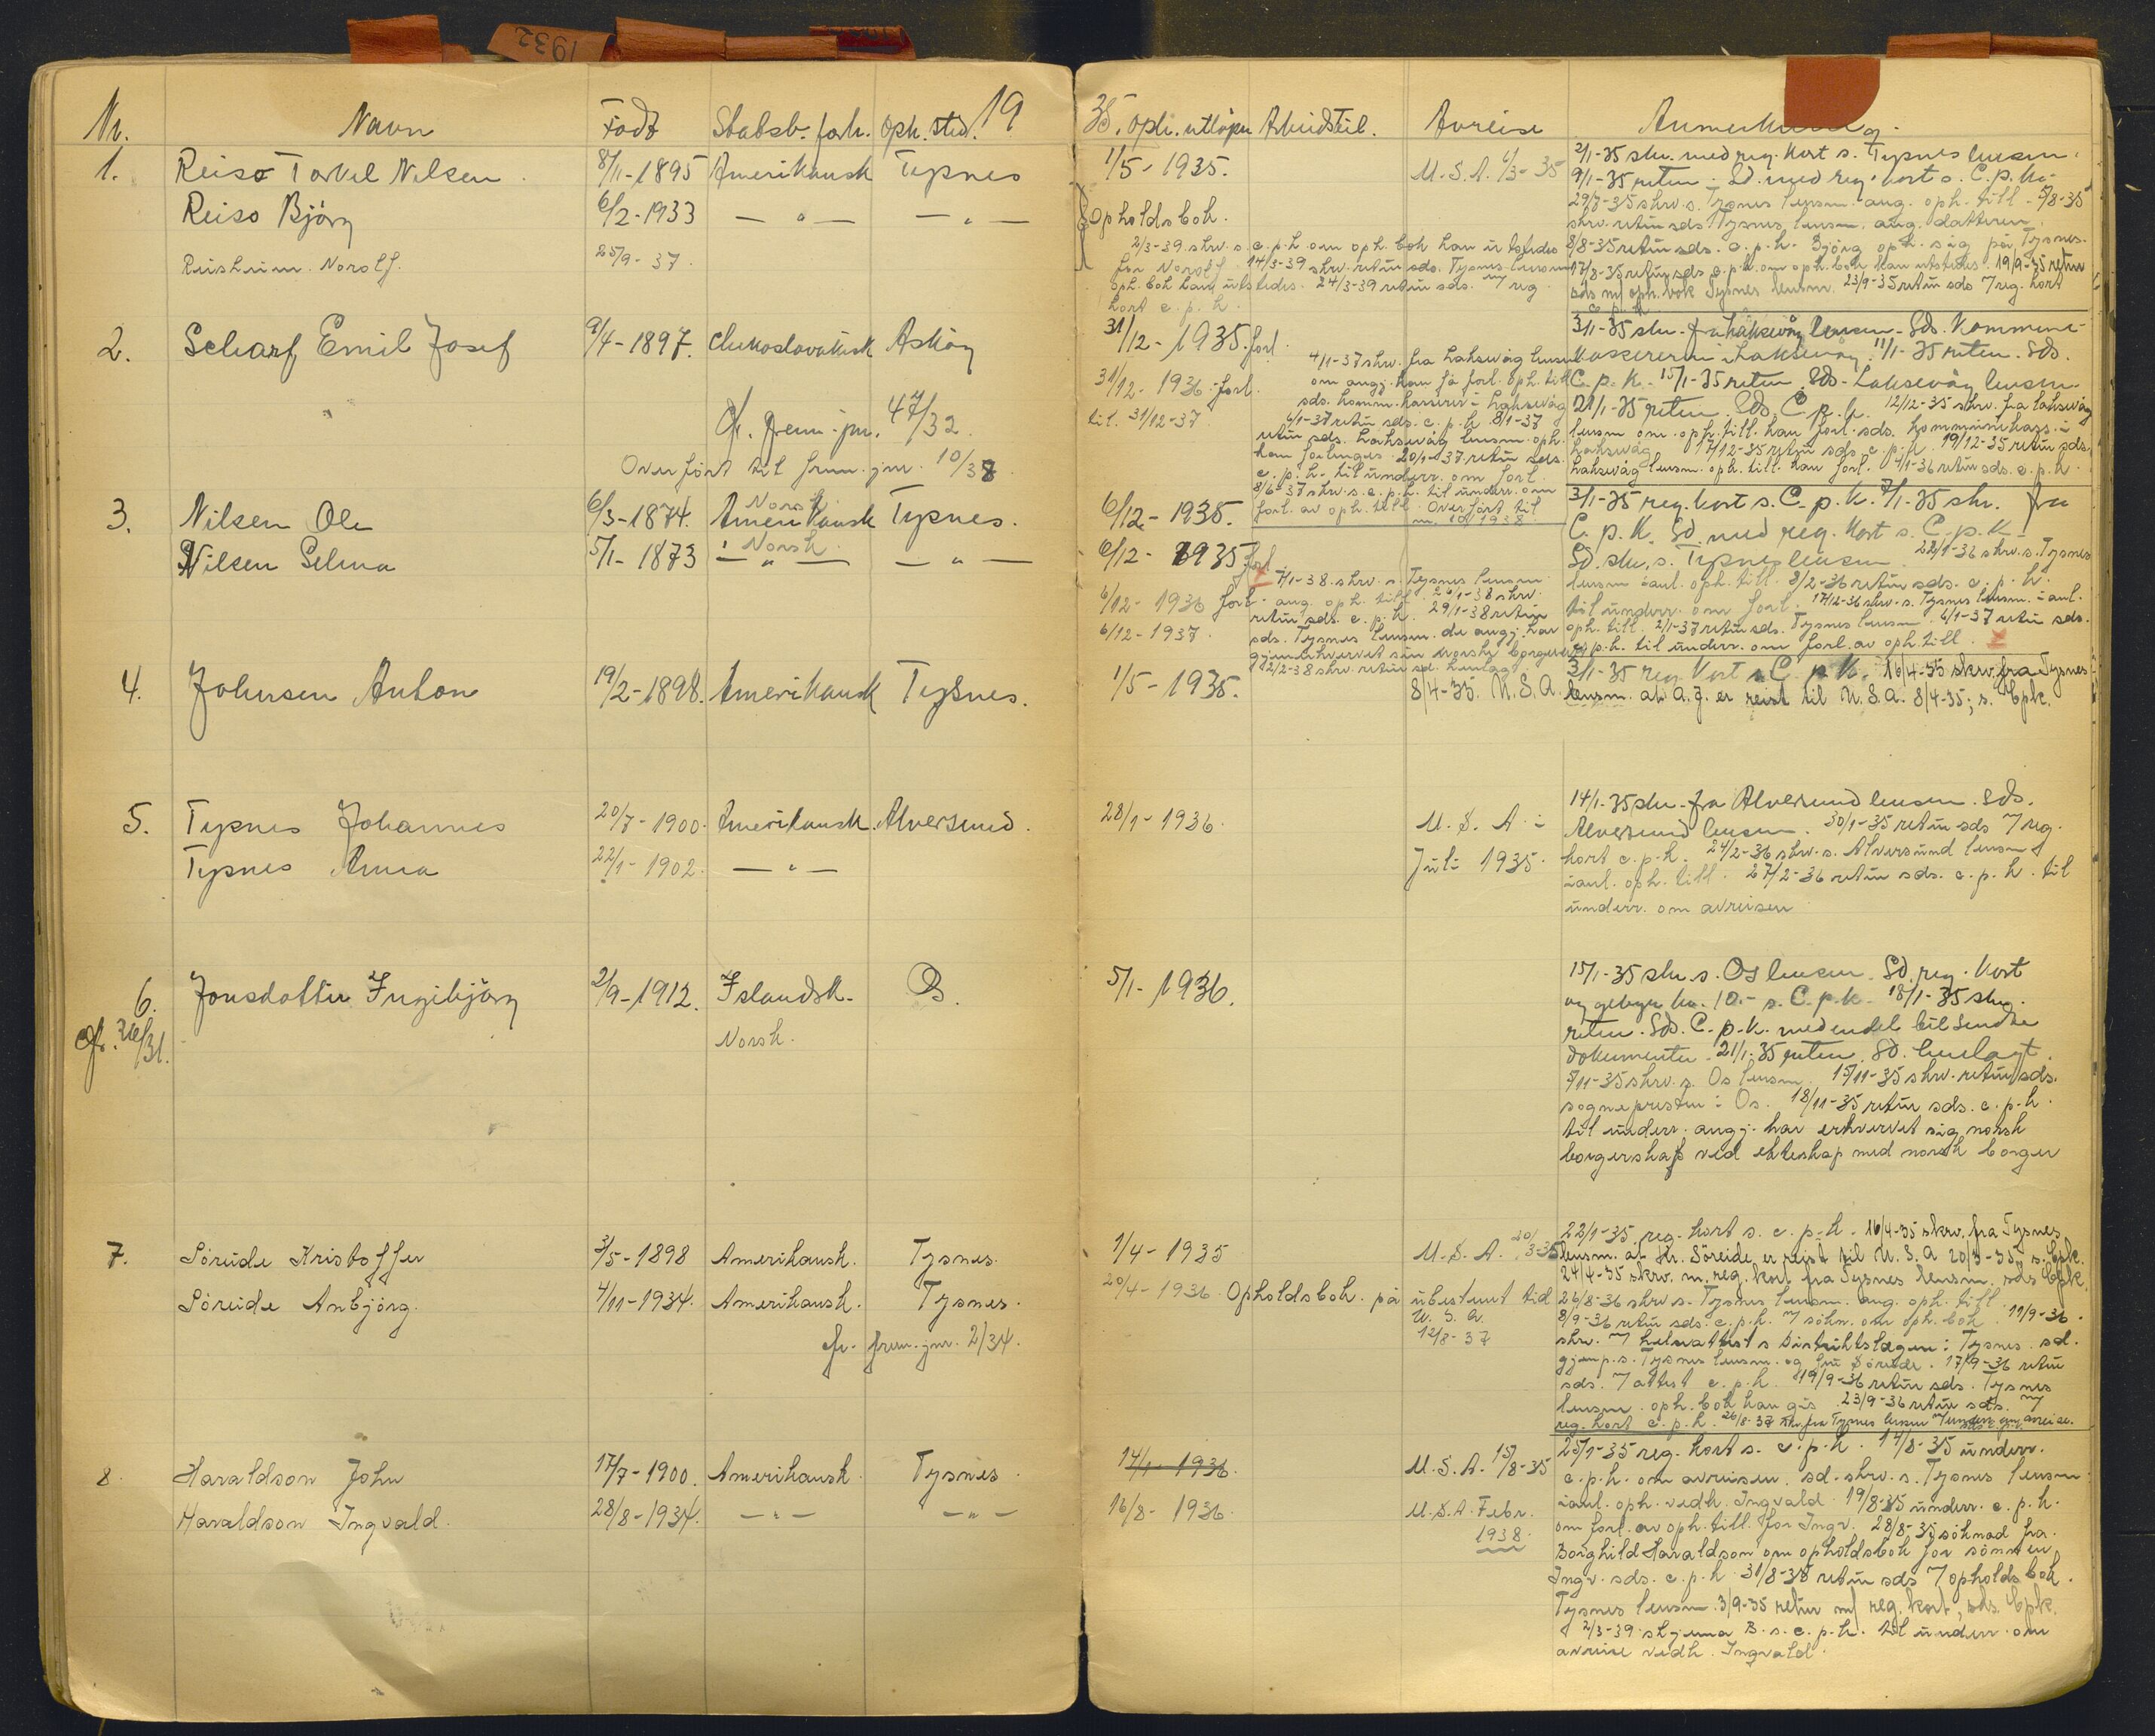 1932
Nr. Navn Født Statsb. forh. Oph. sted. 19
1. Reiso Torkel Nilsen 8/11-1895 Amerikansk Tysnes
Reiso Bjørg 6/2-1933 — " — — " —
Reisheim. Norolf. 25/9-37.
2. Scharf Emil Josef 9/4-1897. Askøy
Cfr. frem-jnr. 47/32.
Overført til frem. jnr. 10/38.
3. Nilsen Ole 6/3-1874. Norsk Amerikansk Tysnes.
Nilsen Selma 5/1-1873 Norsk — " — — " —
4. Johnsen Anton 19/2-1898. Amerikansk Tysnes.
5. Tysnes Johannes 20/7-1900. Amerikansk Alversund.
Tysnes Anna 22/1-1902. — " —
6. Jonsdottir Ingibjörg 2/9-1912. Islandsk- Os.
Cfr. /31. Norsk.
7. Søreide Kristoffer 3/5-1898 Amerikansk. Tysnes.
Søreide Anbjørg. 4/11-1934. Amerikansk. Tysnes.
cfr. frem. jnr. 2/34.
8. Haraldson John 17/7-1900. Amerikansk. Tysnes.
Haraldson Ingvald. 28/8-1934. — " — — " —
35. Oph. utløper Arbeidstil. Avreise Anmerkning.
1/5-1935. U.S.A. 6/3-35
2/1-35 skr. med reg. kort s. Tysnes lensm.
9/1-35 retur. Sd. med reg. kort s. C.p.k.
Opholdsbok.
29/7-35 skrv. s. Tysnes lensm. ang. oph. till. 5/8-35
skrv. retur sds Tysnes lensm. ang. datteren.
8/8-35 retur sds. c.p.k. Bjørg oph. sig på Tysnes.
17/8-35 retur sds c.p.k. om oph. bok kan utstedes. 19/9-35 retur
sds m/ oph. bok Tysnes lensm. 23/9-35 retur sds 7 reg. kort
c.p.k.
2/3-39 skrv. s. c.p.k. om oph. bok kan utstedes
for Norolf. 14/3-39 skrv. retur sds. Tysnes lensm
oph. bok kan utstedes. 24/3-39 retur sds. m/ reg.
kort c.p.k.
31/12-1935. forl.
31/12-1936. forl.
til. 31/12-37.
4/1-37 skrv. fra Laksevåg lensm
om angj. kan få forl. oph. till
sds. komm. kasserer i Laksevåg
6/1-37 retur sds. c.p.k. 8/1-37
retur sds. Laksevåg lensm. oph.
kan forlenges. 20/1-37 retur sds.
c.p.k. til underr. om forl.
8/6-37 skrv. s. c.p.k. til underr. om
forl. av oph. till. Overført til
1938.
3/1-35 skr. fra Laksevåg lensm. Sds. Kommune-
kassereren i Laksevåg. 11/1-35 retur. Sds.
C.p.k. 15/1-35 retur. Sds. Laksevåg lensm.
21/1-35 retur. Sds. C.p.k. 12/12-35 skrv. fra Laksevåg
lensm om oph. till. kan forl. sds. kommunekass. i
Laksevåg 17/12-35 retur sds c.p.k. 19/12-35 retur sds.
Laksevåg lensm. oph. till. kan forl. 4/1-36 retur sds. c.p.k.
6/12-1935.
6/12-1935 forl.
6/12-1936 forl.
6/12-1937.
7/1-38. skrv. s. Tysnes lensm.
ang. oph. till. 26/1-38 skrv.
retur sds. c.p.k. 29/1-38 retur
sds. Tysnes lensm. da angj. har
gjenerhvervet sin norske borgerrett
2/2-38 skrv. retur sd. henlagt
3/1-35 reg. kort s. C.p.k. 7/1-35 skr. fra
C.p.k. Sd. med reg. kort s. C.p.k.
Sd. skr. s. Tysnes lensm. 22/1-36 skrv. s. Tysnes
lensm ianl. oph. till. 8/2-36 retur sds. c.p.k.
til underr. om forl. 17/12-36 skrv. s. Tysnes lensm. i anl.
oph. till. 2/1-37 retur sds. Tysnes lensm. 6/1-37 retur sds.
c.p.k. til underr. om forl. av oph. till.
1/5-1935. 8/4-35. U.S.A.
3/1-35 reg. kort s. C.p.k. 16/4-35 skrv. fra Tysnes
lensm. at A.J. er reist til U.S.A. 8/4-35; s. Cpk.
28/1-1936. U.S.A. i
Juli 1935.
14/1-35 skr. fra Alversund lensm. Sds.
Alversund lensm. 30/1-35 retur sds 7 reg.
kort c.p.k. 24/2-36 skrv. s. Alversund lensm
ianl. oph. till. 27/2-36 retur sds. c.p.k. til
underr. om avreisen
5/1-1936.
15/1-35 skr. s. Os lensm. Sd. reg. kort
og gebyr kr. 10.- s. C.p.k. 18/1-35 skr.
retur. Sds. C.p.k. med endel tilsendte
dokumenter. 21/1-35 retur. Sd. henlagt.
5/11-35 skrv. s. Os lensm. 15/11-35 skrv. retur sds.
sogneprsten i Os. 18/11-35 retur sds. c.p.k.
til underr. angj. har erhvervet sig norsk
borgerskap ved ekteskap med norsk borger
1/4-1935 U.S.A. 20/3-35
20/4-1936. Opholdsbok. på ubestemt tid
U.S.A.
12/8-37
22/1-35 reg. kort s. c.p.k. 16/4-35 skrv. fra Tysnes
lensm. at Kr. Søreide er reist til U.S.A 20/3-35, s. Cpk.
24/4-35 skrv. m. reg. kort fra Tysnes lensm. sds Cpk.
26/8-36 skrv s. Tysnes lensm. ang. oph. till.
8/9-36 retur sds. c.p.k. 7 søkn. om oph. bok. 11/9-36.
skrv. 7 helseattest s Distriktslegen i Tysnes. sd.
gjenp. s. Tysnes lensm. og fru Søreide. 17/9-36 retur
sds. 7 attest c.p.k. 19/9-36 retur sds. Tysnes
lensm. oph. bok kan gis. 23/9-36 retur sds. m/
reg. kort c.p.k. 26/8-37 skr. fra Tysnes lensm 7 underr. om avreise.
14/1-1936. U.S.A. 15/8-35
16/8-1936. U.S.A. Febr.
1938.
25/1-35 reg. kort s. c.p.k. 17/8-35 underr.
c.p.k. om avreisen. sd. skrv. s. Tysnes lensm
ianl. oph. vedk. Ingvald. 19/8-35 underr. c.p.k.
om forl. av oph. till. for Ingv. 28/8-35 søknad fra
Borghild Haraldson om opholdsbok for sønnen
Ingv. sds. c.p.k. 31/8-35 retur sds 7 opholdsbok.
Tysnes lensm. 3/9-35 retur m/ reg. kort, sds. Cpk.
2/3-39 skjema B. s. c.p.k. til underr. om
avreise vedk. Ingvald.